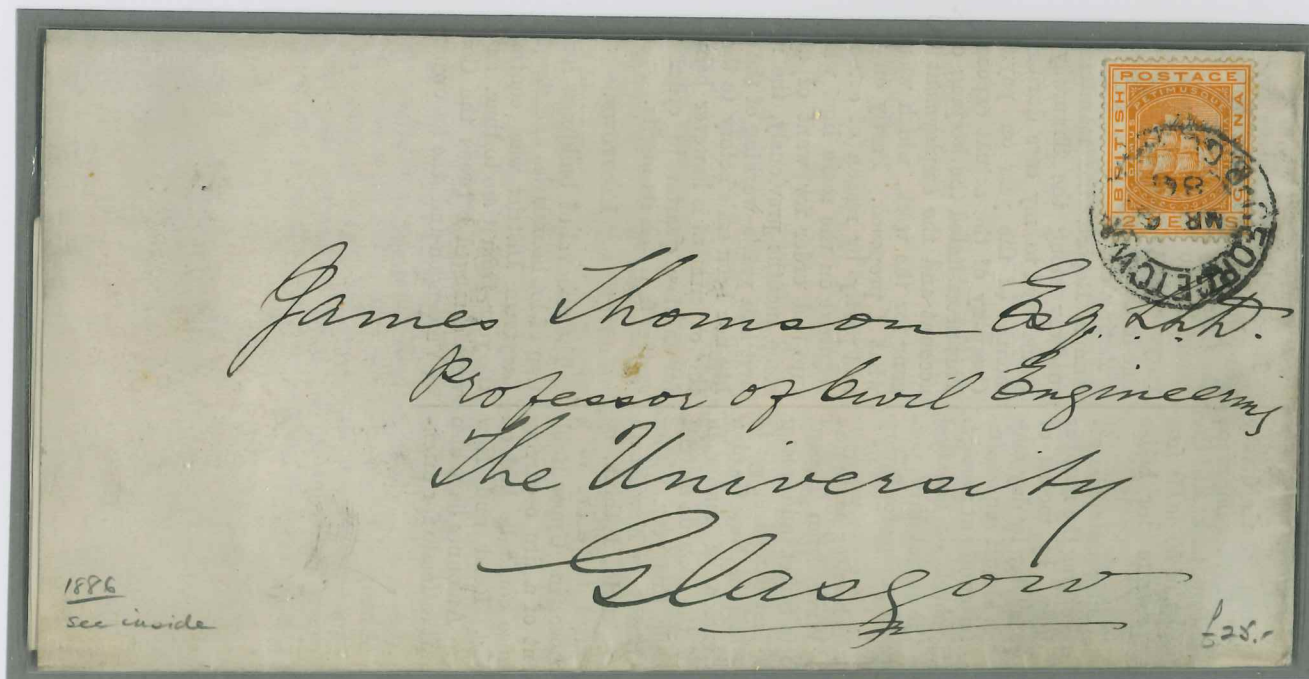 POSTAGE
BRITISH
GUIANA
2 CENTS
GEORGETOWN
MR 6
86
James Thomson Esq. LL.D.
Professor of Civil Engineering
The University
Glasgow
1886
see inside
£25.-